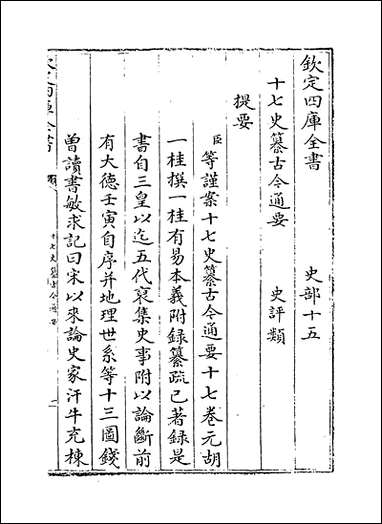 欽定四庫全書　史部十五
十七史纂古今通要　史評類
提要
臣等謹案十七史纂古今通要十七卷元胡
一桂撰一桂有易本義附録纂疏已著録是
書自三皇以迄五代裒集史事附以論斷前
有大德壬寅自序并地理世系等十三圖錢
曾讀書敏求記曰宋以來論史家汗牛充棟
十七史纂古今通要